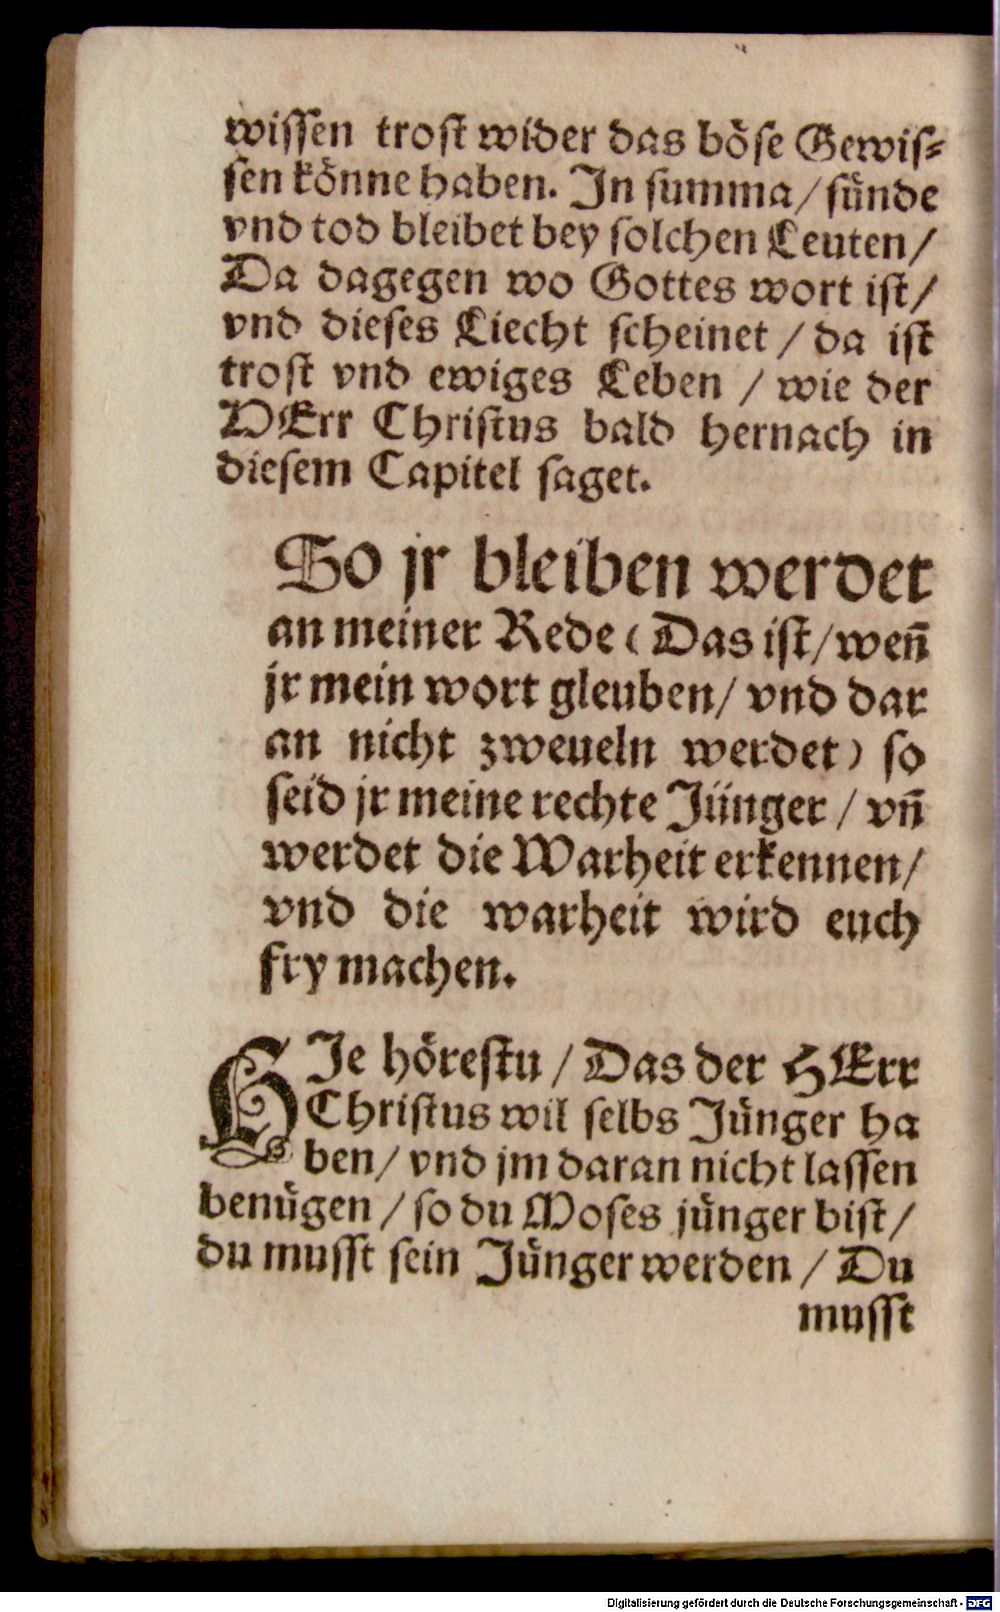 wissen trost wider das böse Gewis⸗
sen könne haben. In summa / sünde
vnd tod bleibet bey solchen Leuten /
Da dagegen wo Gottes wort ist /
vnd dieses Liecht scheinet / da ist
trost vnd ewiges Leben / wie der
HErr Christus bald hernach in
diesem Capitel saget.
So jr bleiben werdet
an meiner Rede (Das ist / wen̄
jr mein wort gleuben / vnd dar
an nicht zweueln werdet) so
seid jr meine rechte Jünger / vn̄
werdet die Warheit erkennen /
vnd die warheit wird euch
fry machen.
HIe hörestu / Das der HErr
Christus wil selbs Jünger ha
ben / vnd jm daran nicht lassen
benügen / so du Moses jünger bist /
du musst sein Jünger werden / Du
musst
Digitalisierung gefördert durch die Deutsche Forschungsgemeinschaft - DFG